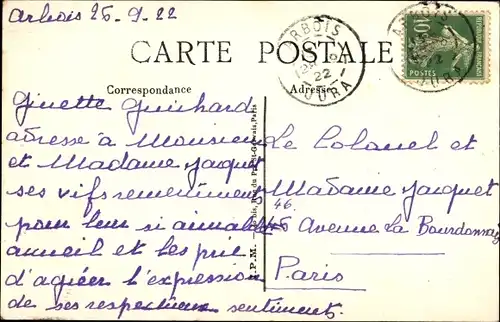 Arbois 26-9-22
CARTE POSTALE
Correspondance
Adresse
ARBOIS
22
JURA
10
POSTES
Ginette Guichard
adresse à Monsieur
et Madame Jacquet
ses vifs remerciements
pour leur si aimable
accueil et les prie
d'agréer l'expression
de ses respectueux sentiments.
A.P.M.
Le Colonel et
Madame Jacquet
46
45 Avenue La Bourdonnais
Paris